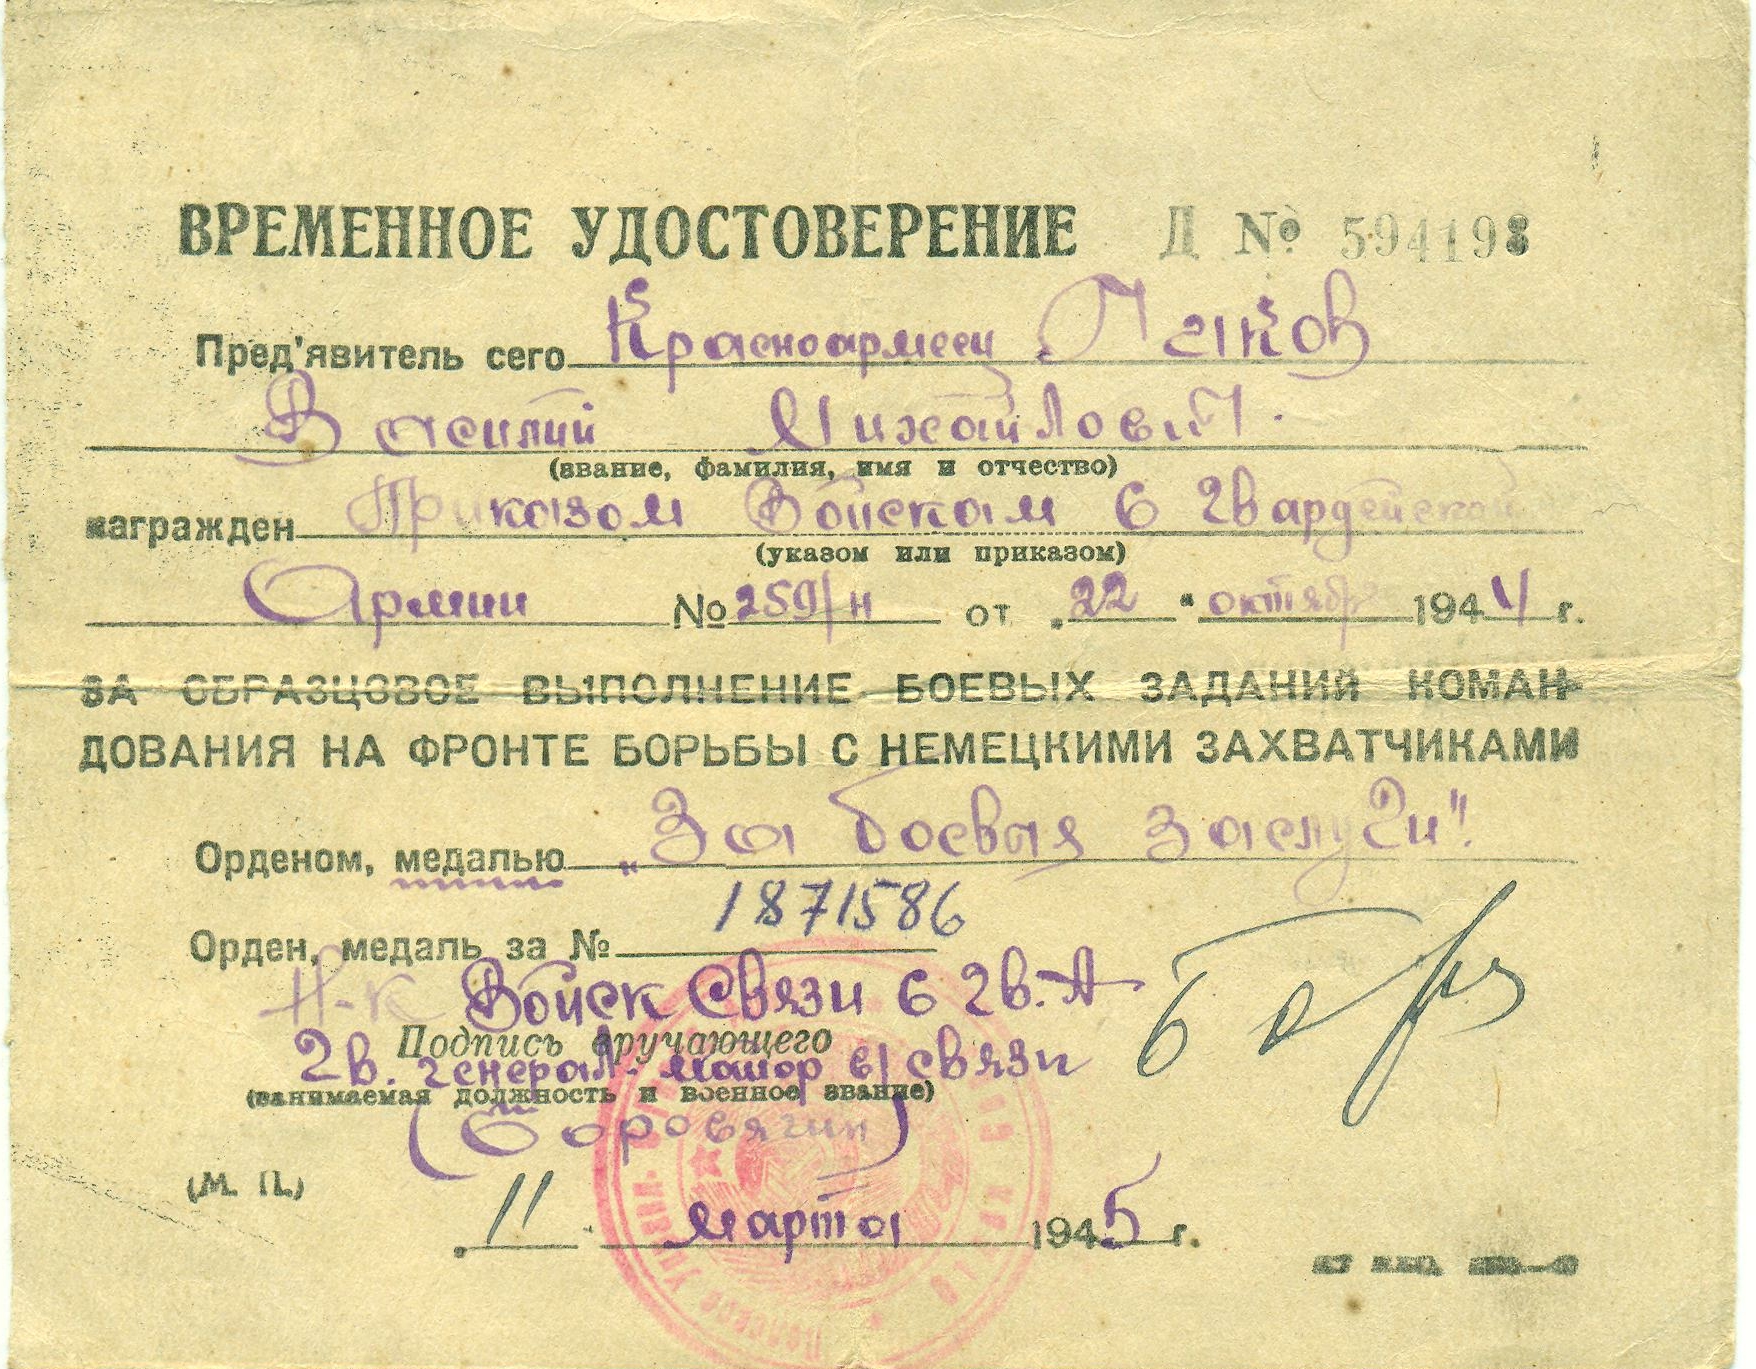 ВРЕМЕННОЕ УДОСТОВЕРЕНИЕ Д № 594198
Пред'явитель сего Красноармеец
Василий Михайлович.
(звание, фамилия, имя и отчество)
награжден Приказом Войскам 6 Гвардейской
(указом или приказом)
Армии № 259/н от „22" октября 1944 г.
ЗА ОБРАЗЦОВОЕ ВЫПОЛНЕНИЕ БОЕВЫХ ЗАДАНИЙ КОМАН-
ДОВАНИЯ НА ФРОНТЕ БОРЬБЫ С НЕМЕЦКИМИ ЗАХВАТЧИКАМИ
Орденом, медалью „За боевыя заслуги".
Орден, медаль за № 1871586
Н-к Войск Связи 6 гв. А
Подпись вручающего
гв. генерал-майор в/связи
(занимаемая должность и военное звание)
(Боровягин)
(М. П.)
„11" марта 1945 г.